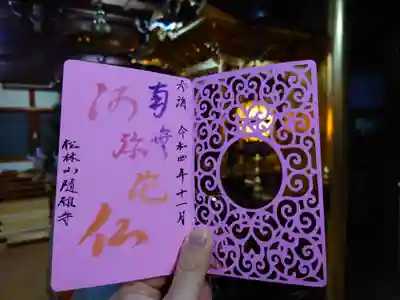 奉請 令和四年十一月
南無
阿弥陀仏
松林山随願寺